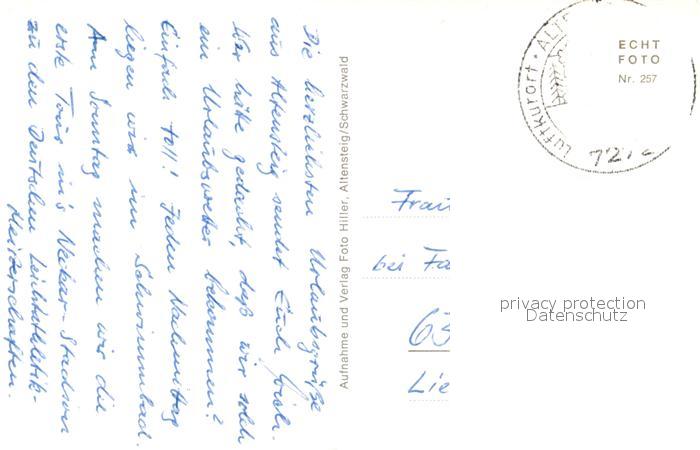 Die herzlichsten Urlaubsgrüße
aus Altensteig sendet Euch
Wer hätte gedacht, daß wir solch
ein Urlaubswetter bekommen?
Einfach toll! Jeden Nachmittag
liegen wir im Schwimmbad.
Am Sonntag machen wir die
erste Tour in's Neckar-Stadion
zu den Deutschen Leichtathletik-
Meisterschaften.
Aufnahme und Verlag Foto Hiller, Altensteig/Schwarzwald
Luftkurort · ALT
721
ECHT
FOTO
Nr. 257
Frau
bei Fa
63
Lie
privacy protection
Datenschutz